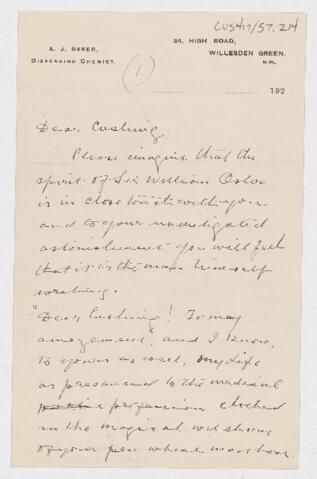 CUS417/57.214
A. J. BAKER,
DISPENSING CHEMIST.
34, HIGH ROAD,
WILLESDEN GREEN.
N.W.
(1)
192
Dear Cushing,
Please imagine that the
spirit of Sir William Osler
is in close touch with you
and to your unmitigated
astonishment you will feel
that it is the man himself
writing.
"Dear Cushing! To my
amazement, and I know,
to yours as well, my life
as presented to the medical
profession clothed
in the magical
of your pen